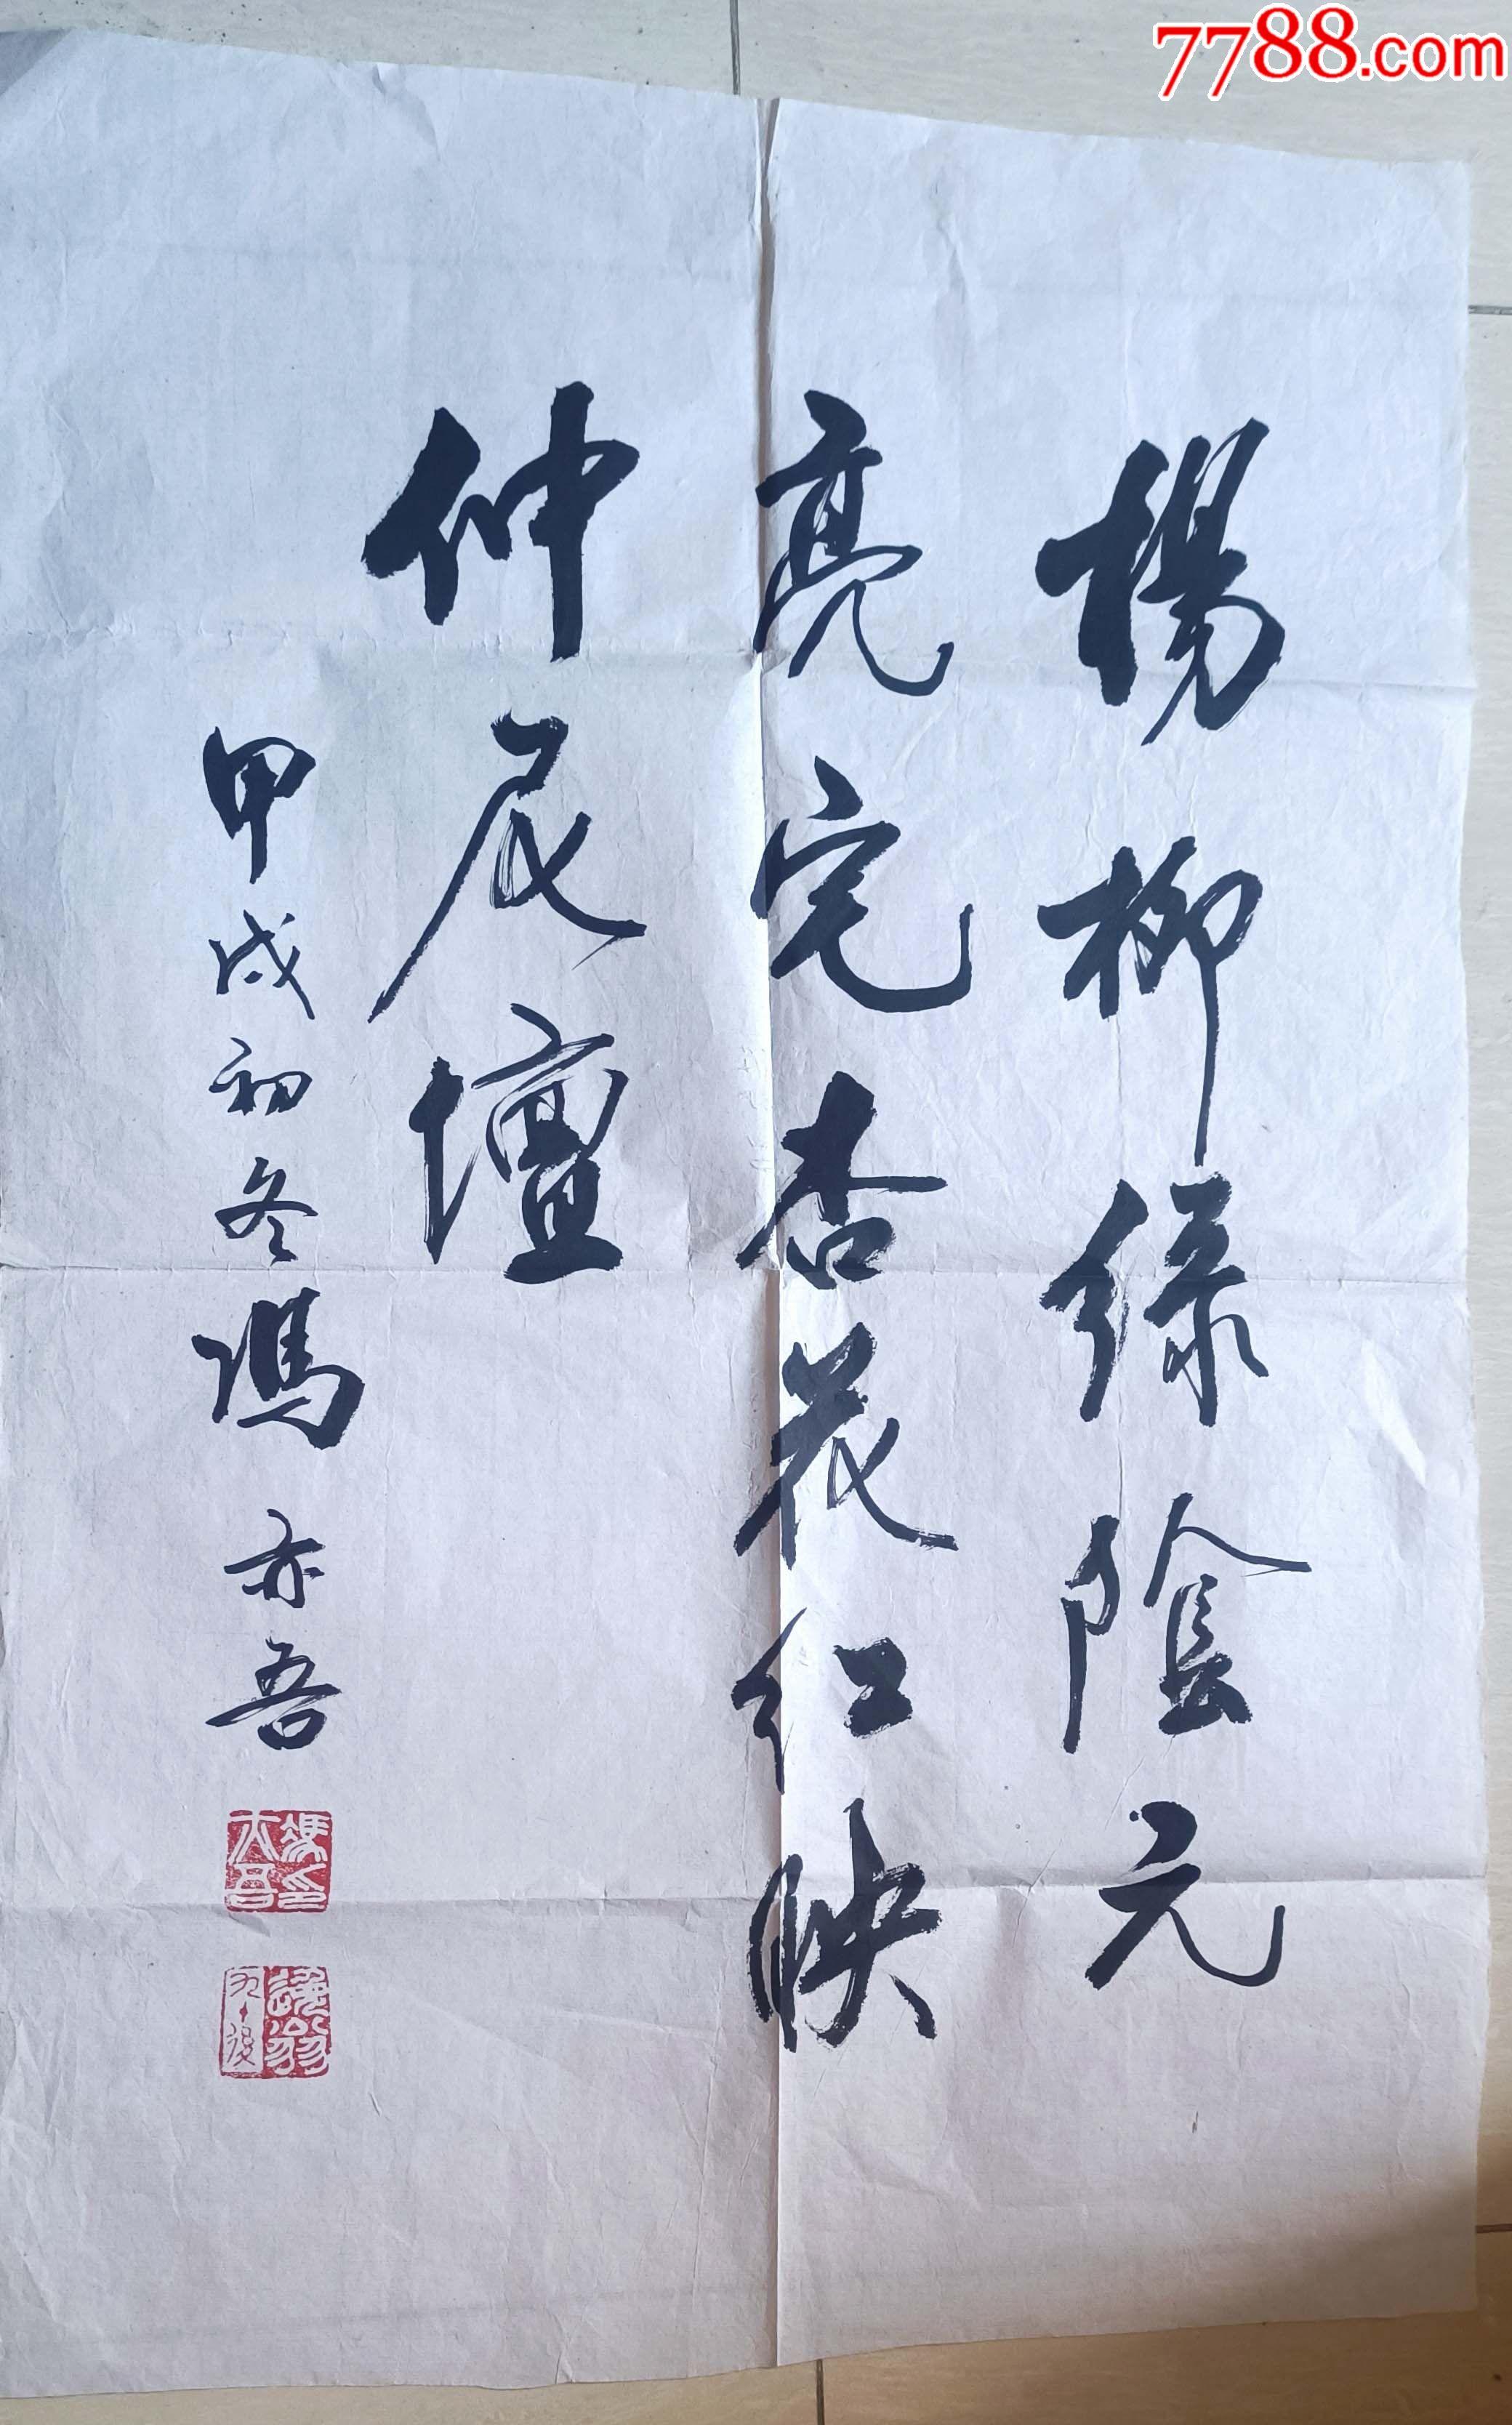 楊柳綠陰元
亮宅杏花红映
仲尼壇
甲戌初冬馮亦吾
馮亦吾印
7788.com